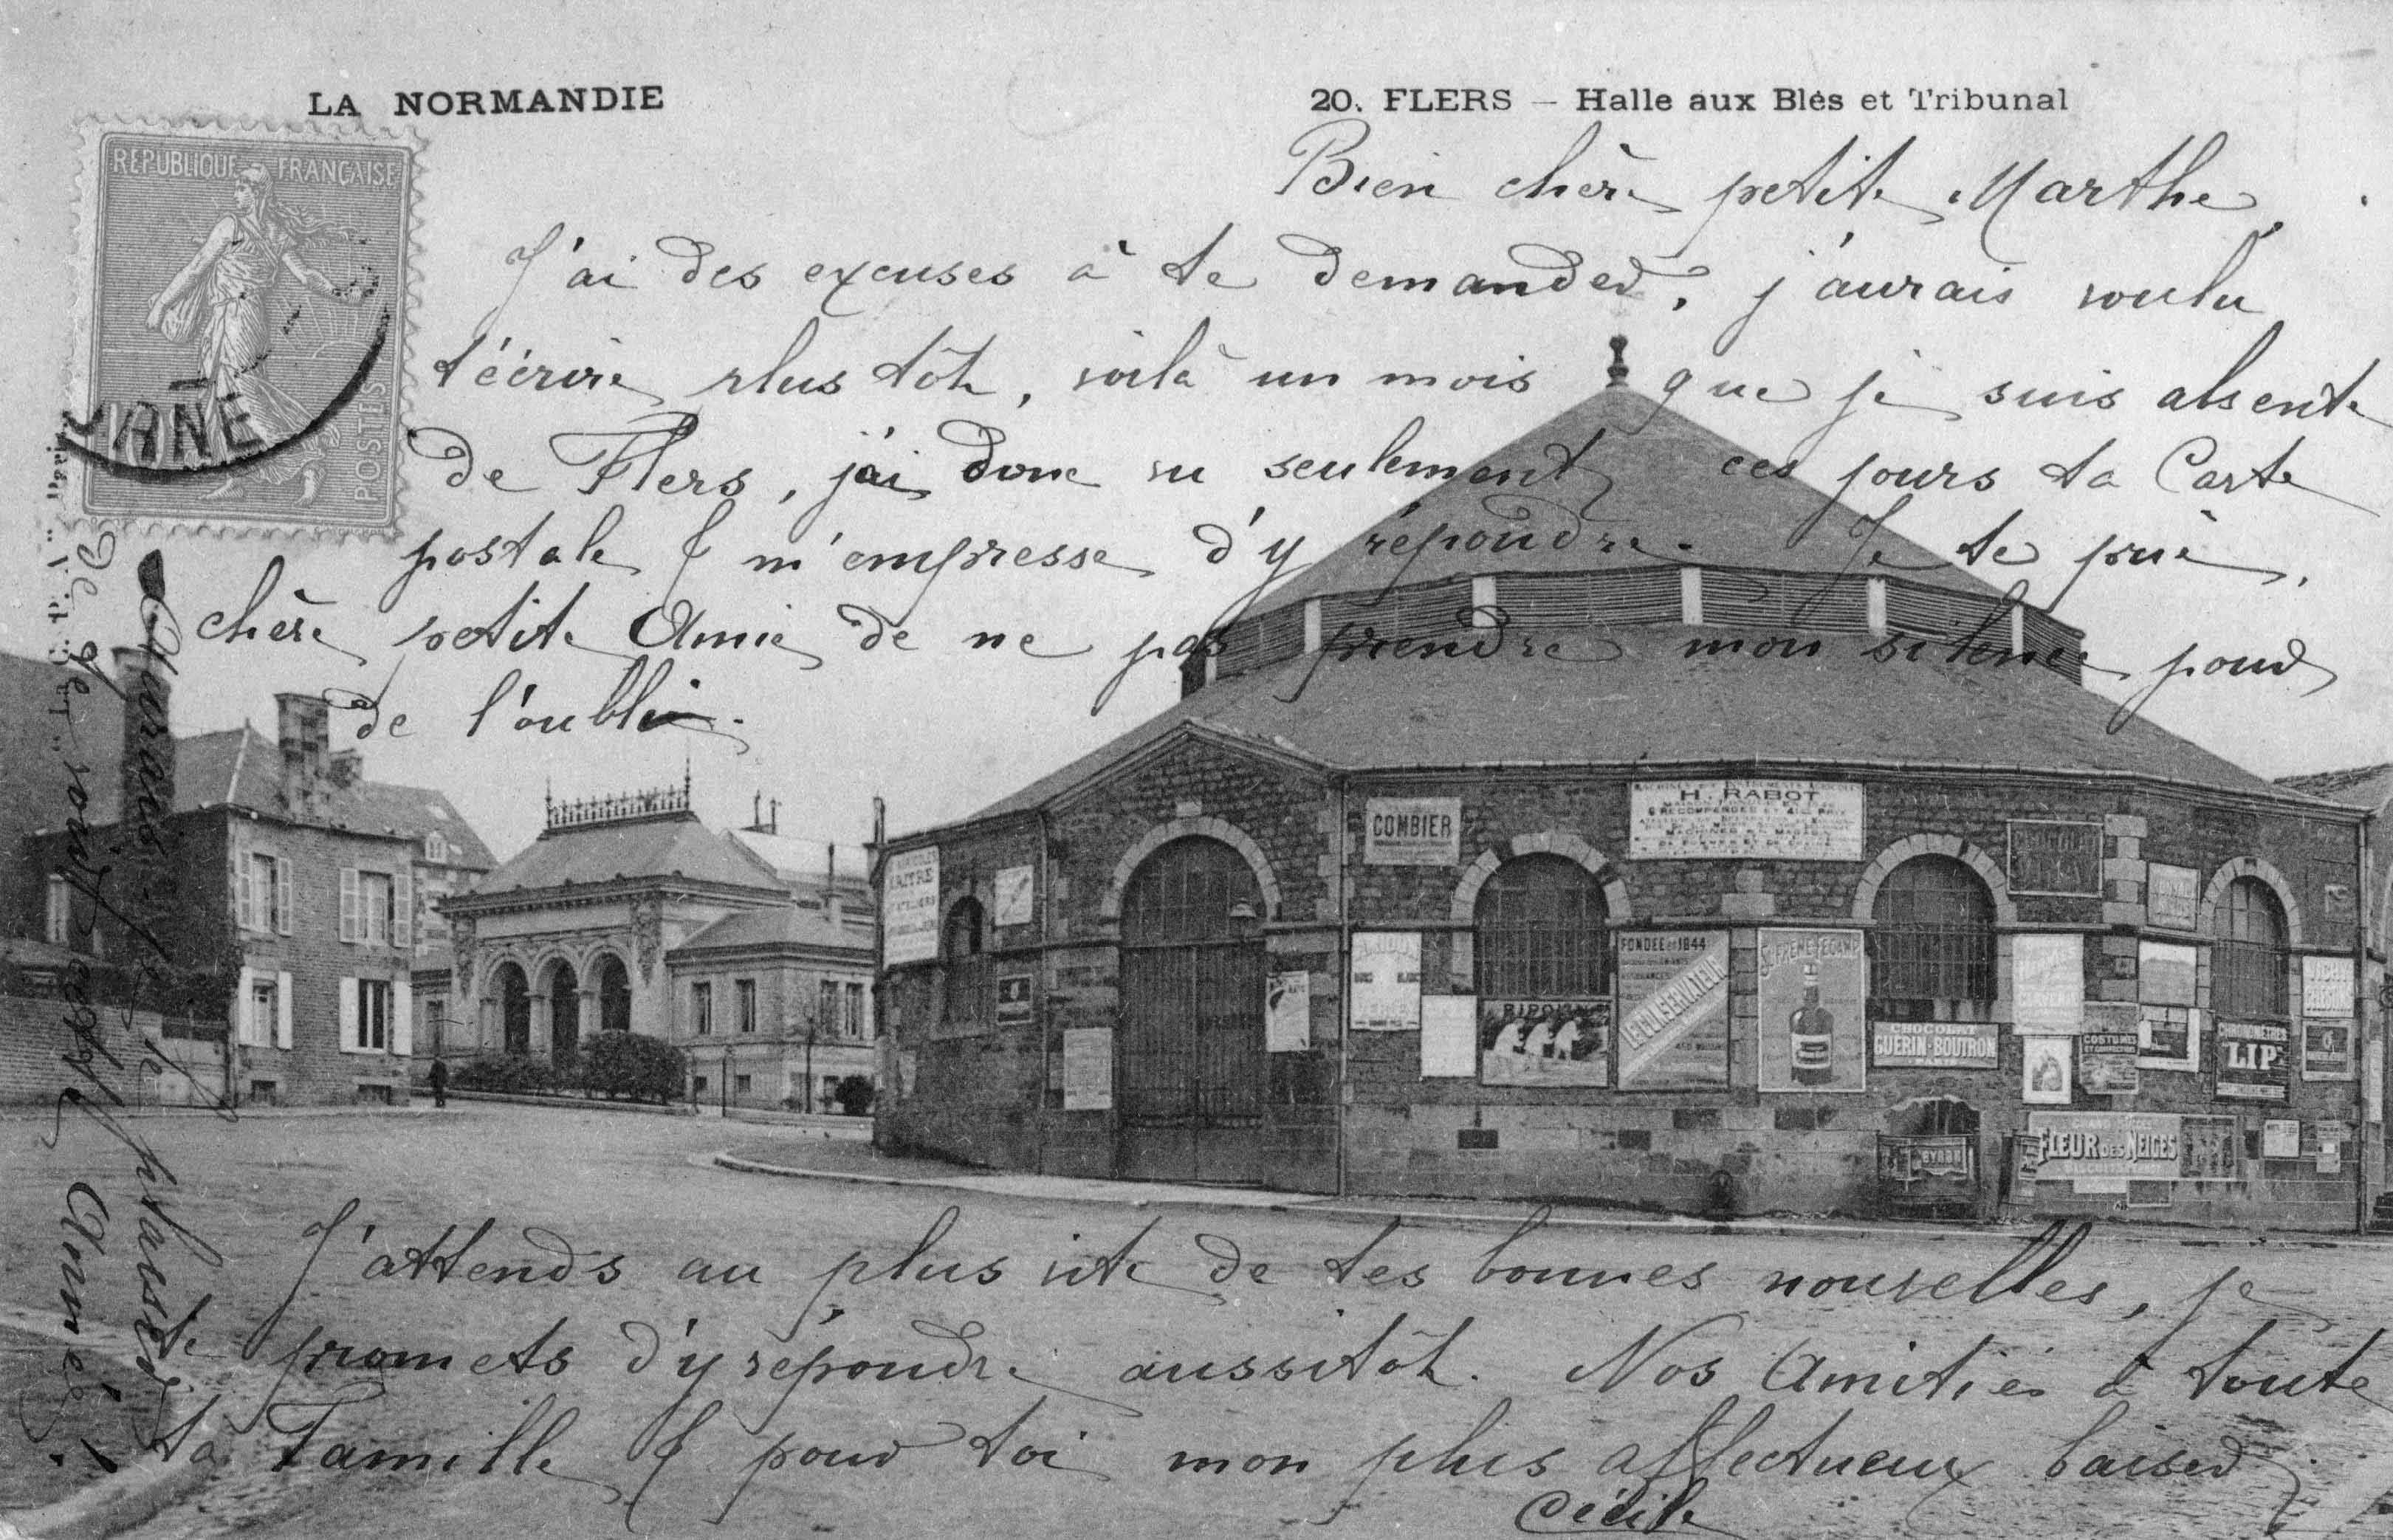 LA NORMANDIE
20. FLERS — Halle aux Blés et Tribunal
REPUBLIQUE FRANÇAISE
POSTES
ORNE
Bien chère petite Marthe,
J'ai des excuses à te demander, j'aurais voulu
t'écrire plus tôt, voilà un mois que je suis absente
de Flers, j'ai donc vu seulement ces jours ta Carte
postale & m'empresse d'y répondre. Je te prie,
chère petite Amie de ne pas prendre mon silence pour
de l'oubli.
COMBIER
H. RABOT
FONDÉE en 1844
LE CONSERVATEUR
SUPREME FECAMP
RIPOLIN
CHOCOLAT
GUERIN-BOUTRON
PARIS
COSTUMES
CHRONOMÈTRES
LIP
VICHY
CELESTINS
BYRRH
FLEUR DES NEIGES
J'attends au plus vite de tes bonnes nouvelles, je
te promets d'y répondre aussitôt. Nos Amitiés à toute
ta Famille & pour toi mon plus affectueux baiser
Cécile
Aurais-je le plaisir
de
Année!